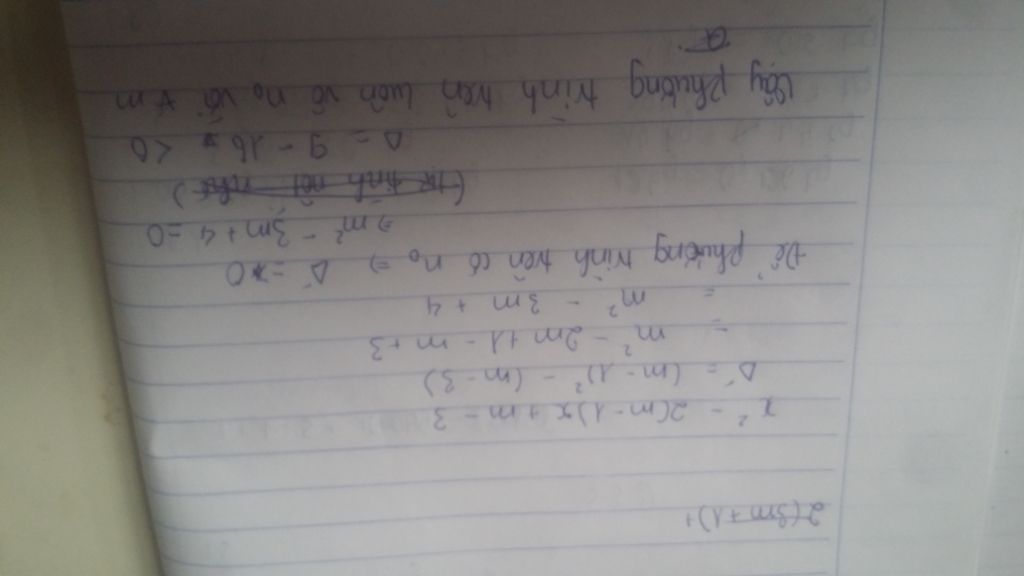 2(3m+1)+
x² - 2(m-1)x + m - 3
Δ' = (m-1)² - (m-3)
= m² - 2m + 1 - m + 3
= m² - 3m + 4
Để phương trình trên có n₀ ⇒ Δ' = 0
⇒ m² - 3m + 4 = 0
Δ = 9 - 16 < 0
Vậy phương trình trên luôn vô n₀ với ∀ m